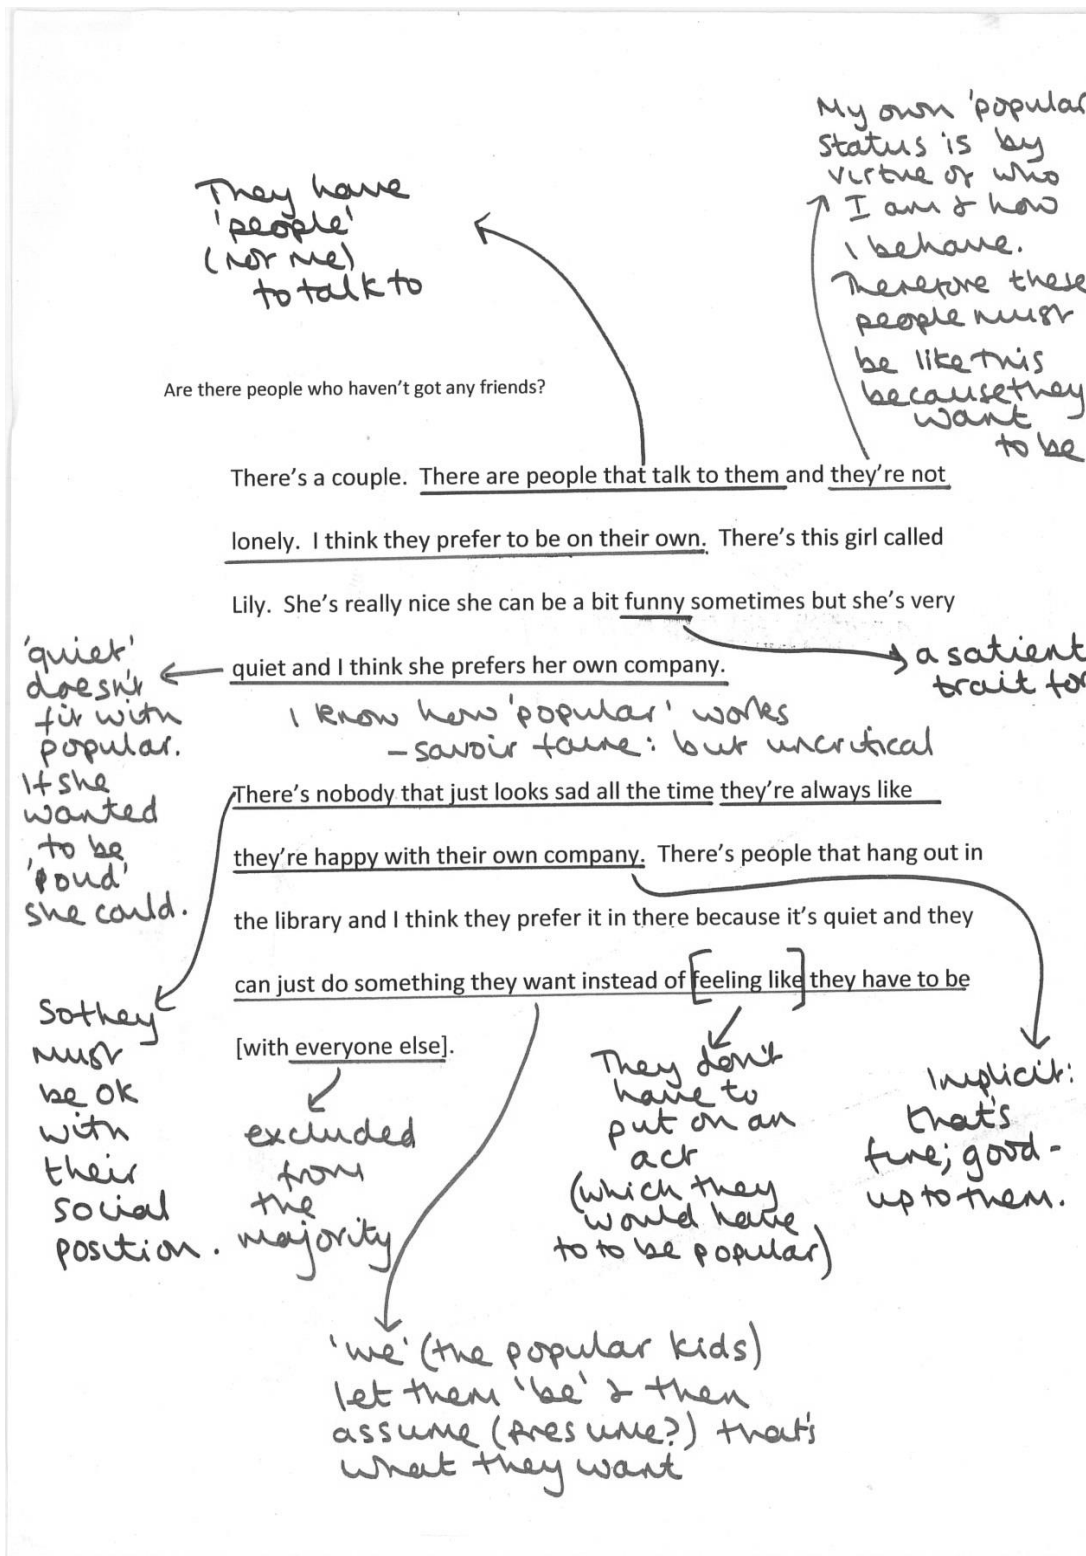 My own 'popular
status is by
virtue of who
I am & how
I behave.
Therefore these
people must
be like this
because they
want
to be
They have
'people'
(not me)
to talk to
Are there people who haven't got any friends?
There's a couple. There are people that talk to them and they're not
lonely. I think they prefer to be on their own. There's this girl called
Lily. She's really nice she can be a bit funny sometimes but she's very
quiet and I think she prefers her own company.
a salient
trait for
'quiet'
doesn't
fit with
popular.
If she
wanted
to be
'loud'
she could.
I know how 'popular' works
- savoir faire: but uncritical
There's nobody that just looks sad all the time they're always like
they're happy with their own company. There's people that hang out in
the library and I think they prefer it in there because it's quiet and they
can just do something they want instead of [feeling like] they have to be
[with everyone else].
So they
must
be ok
with
their
social
position.
excluded
from
the
majority
They don't
have to
put on an
act
(which they
would have
to to be popular)
Implicit:
that's
fine; good -
up to them.
'we' (the popular kids)
let them 'be' & then
assume (presume?) that's
what they want